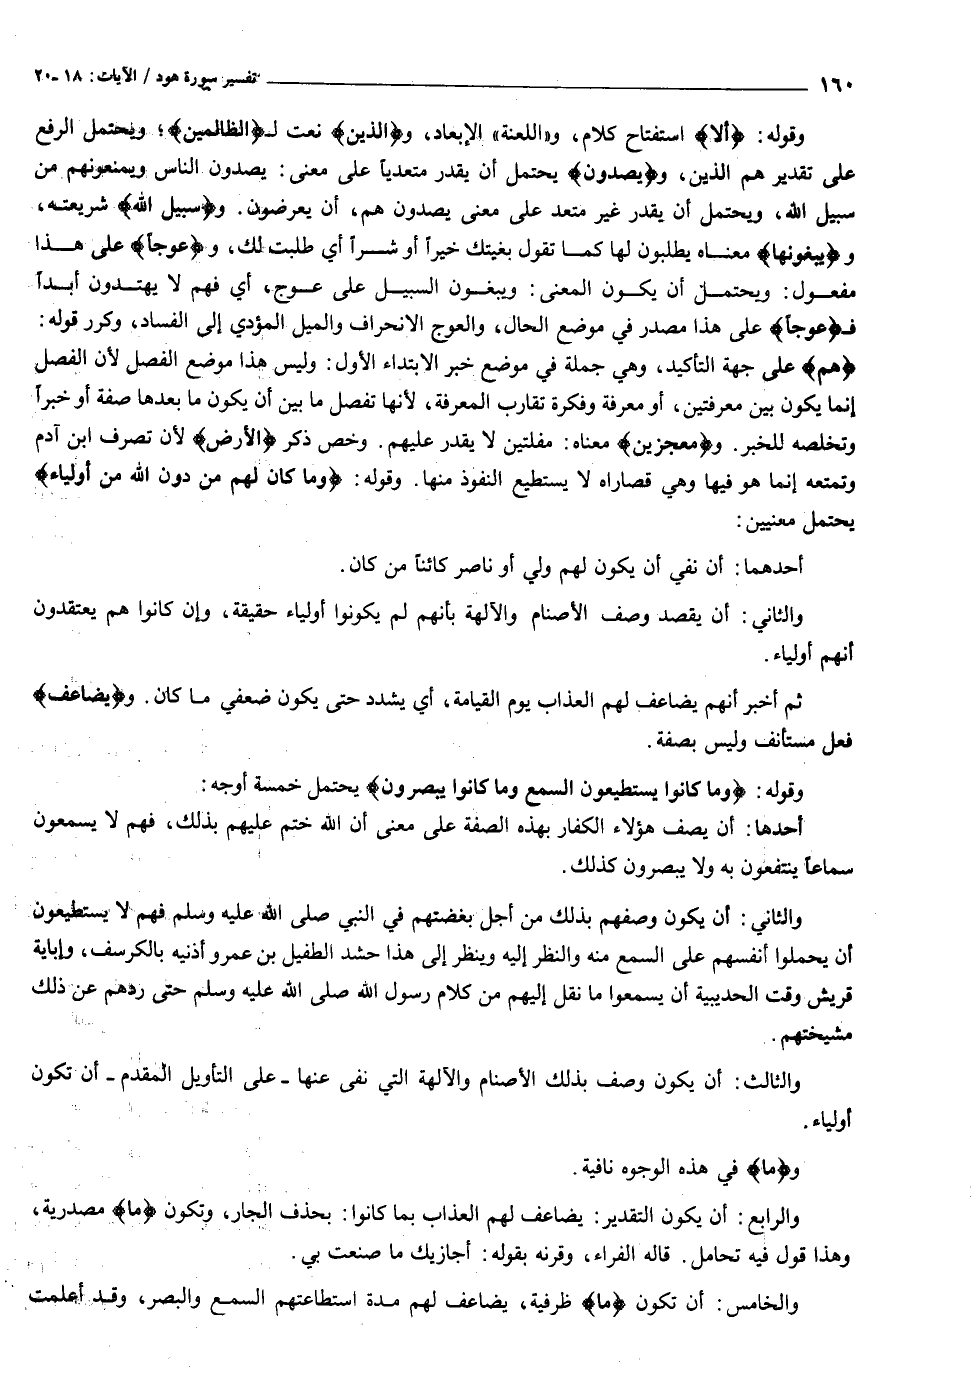 ١٦٠ تفسير سورة هود / الآيات: ١٨ ـ ٢٠
وقوله: ﴿ألا﴾ استفتاح كلام، و«اللعنة» الإبعاد، و﴿الذين﴾ نعت لـ﴿الظالمين﴾؛ ويحتمل الرفع
على تقدير هم الذين، و﴿يصدون﴾ يحتمل أن يقدر متعدياً على معنى: يصدون الناس ويمنعونهم من
سبيل الله، ويحتمل أن يقدر غير متعد على معنى يصدون هم، أن يعرضون. و﴿سبيل الله﴾ شريعته،
و﴿يبغونها﴾ معناه يطلبون لها كما تقول بغيتك خيراً أو شراً أي طلبت لك، و﴿عوجاً﴾ على هذا
مفعول: ويحتمل أن يكون المعنى: ويبغون السبيل على عوج، أي فهم لا يهتدون أبداً
فـ﴿عوجاً﴾ على هذا مصدر في موضع الحال، والعوج الانحراف والميل المؤدي إلى الفساد، وكرر قوله:
﴿هم﴾ على جهة التأكيد، وهي جملة في موضع خبر الابتداء الأول: وليس هذا موضع الفصل لأن الفصل
إنما يكون بين معرفتين، أو معرفة وفكرة تقارب المعرفة، لأنها تفصل ما بين أن يكون ما بعدها صفة أو خبراً
وتخلصه للخبر. و﴿معجزين﴾ معناه: مفلتين لا يقدر عليهم. وخص ذكر ﴿الأرض﴾ لأن تصرف ابن آدم
وتمتعه إنما هو فيها وهي قصاراه لا يستطيع النفوذ منها. وقوله: ﴿وما كان لهم من دون الله من أولياء﴾
يحتمل معنيين:
أحدهما: أن نفي أن يكون لهم ولي أو ناصر كائناً من كان.
والثاني: أن يقصد وصف الأصنام والآلهة بأنهم لم يكونوا أولياء حقيقة، وإن كانوا هم يعتقدون
أنهم أولياء.
ثم أخبر أنهم يضاعف لهم العذاب يوم القيامة، أي يشدد حتى يكون ضعفي ما كان. و﴿يضاعف﴾
فعل مستأنف وليس بصفة.
وقوله: ﴿وما كانوا يستطيعون السمع وما كانوا يبصرون﴾ يحتمل خمسة أوجه:
أحدها: أن يصف هؤلاء الكفار بهذه الصفة على معنى أن الله ختم عليهم بذلك، فهم لا يسمعون
سماعاً ينتفعون به ولا يبصرون كذلك.
والثاني: أن يكون وصفهم بذلك من أجل بغضتهم في النبي صلى الله عليه وسلم فهم لا يستطيعون
أن يحملوا أنفسهم على السمع منه والنظر إليه وينظر إلى هذا حشد الطفيل بن عمرو أذنيه بالكرسف، وإباية
قريش وقت الحديبية أن يسمعوا ما نقل إليهم من كلام رسول الله صلى الله عليه وسلم حتى ردهم عن ذلك
مشيختهم.
والثالث: أن يكون وصف بذلك الأصنام والآلهة التي نفى عنها ـ على التأويل المقدم ـ أن تكون
أولياء.
و﴿ما﴾ في هذه الوجوه نافية.
والرابع: أن يكون التقدير: يضاعف لهم العذاب بما كانوا: بحذف الجار، وتكون ﴿ما﴾ مصدرية،
وهذا قول فيه تحامل. قاله الفراء، وقرنه بقوله: أجازيك ما صنعت بي.
والخامس: أن تكون ﴿ما﴾ ظرفية، يضاعف لهم مدة استطاعتهم السمع والبصر، وقد أعلمت